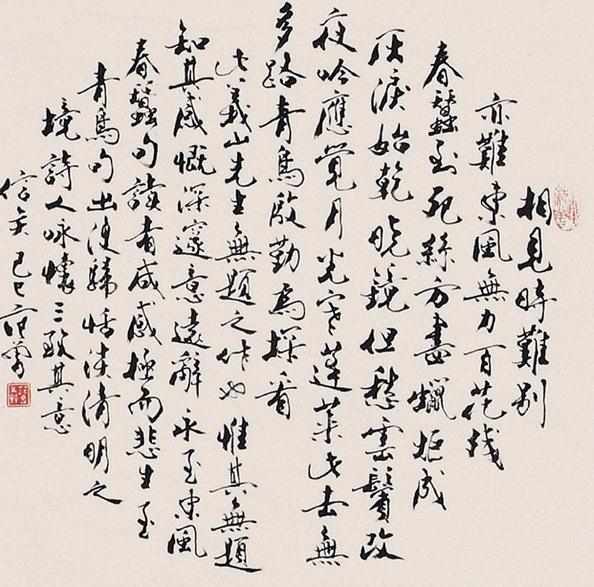 相見時難別
亦難東風無力百花殘
春蠶到死絲方盡蠟炬成
灰淚始乾曉鏡但愁雲鬢改
夜吟應覺月光寒蓬萊此去無
多路青鳥殷勤爲探看
此義山先生無題之作也惟其無題
知其感慨深邃意遠辭永至東風
春蠶句讀者咸感極而悲生至
青鳥句出便歸恬淡清明之
境詩人咏懷三致其意
信矣己巳范曾